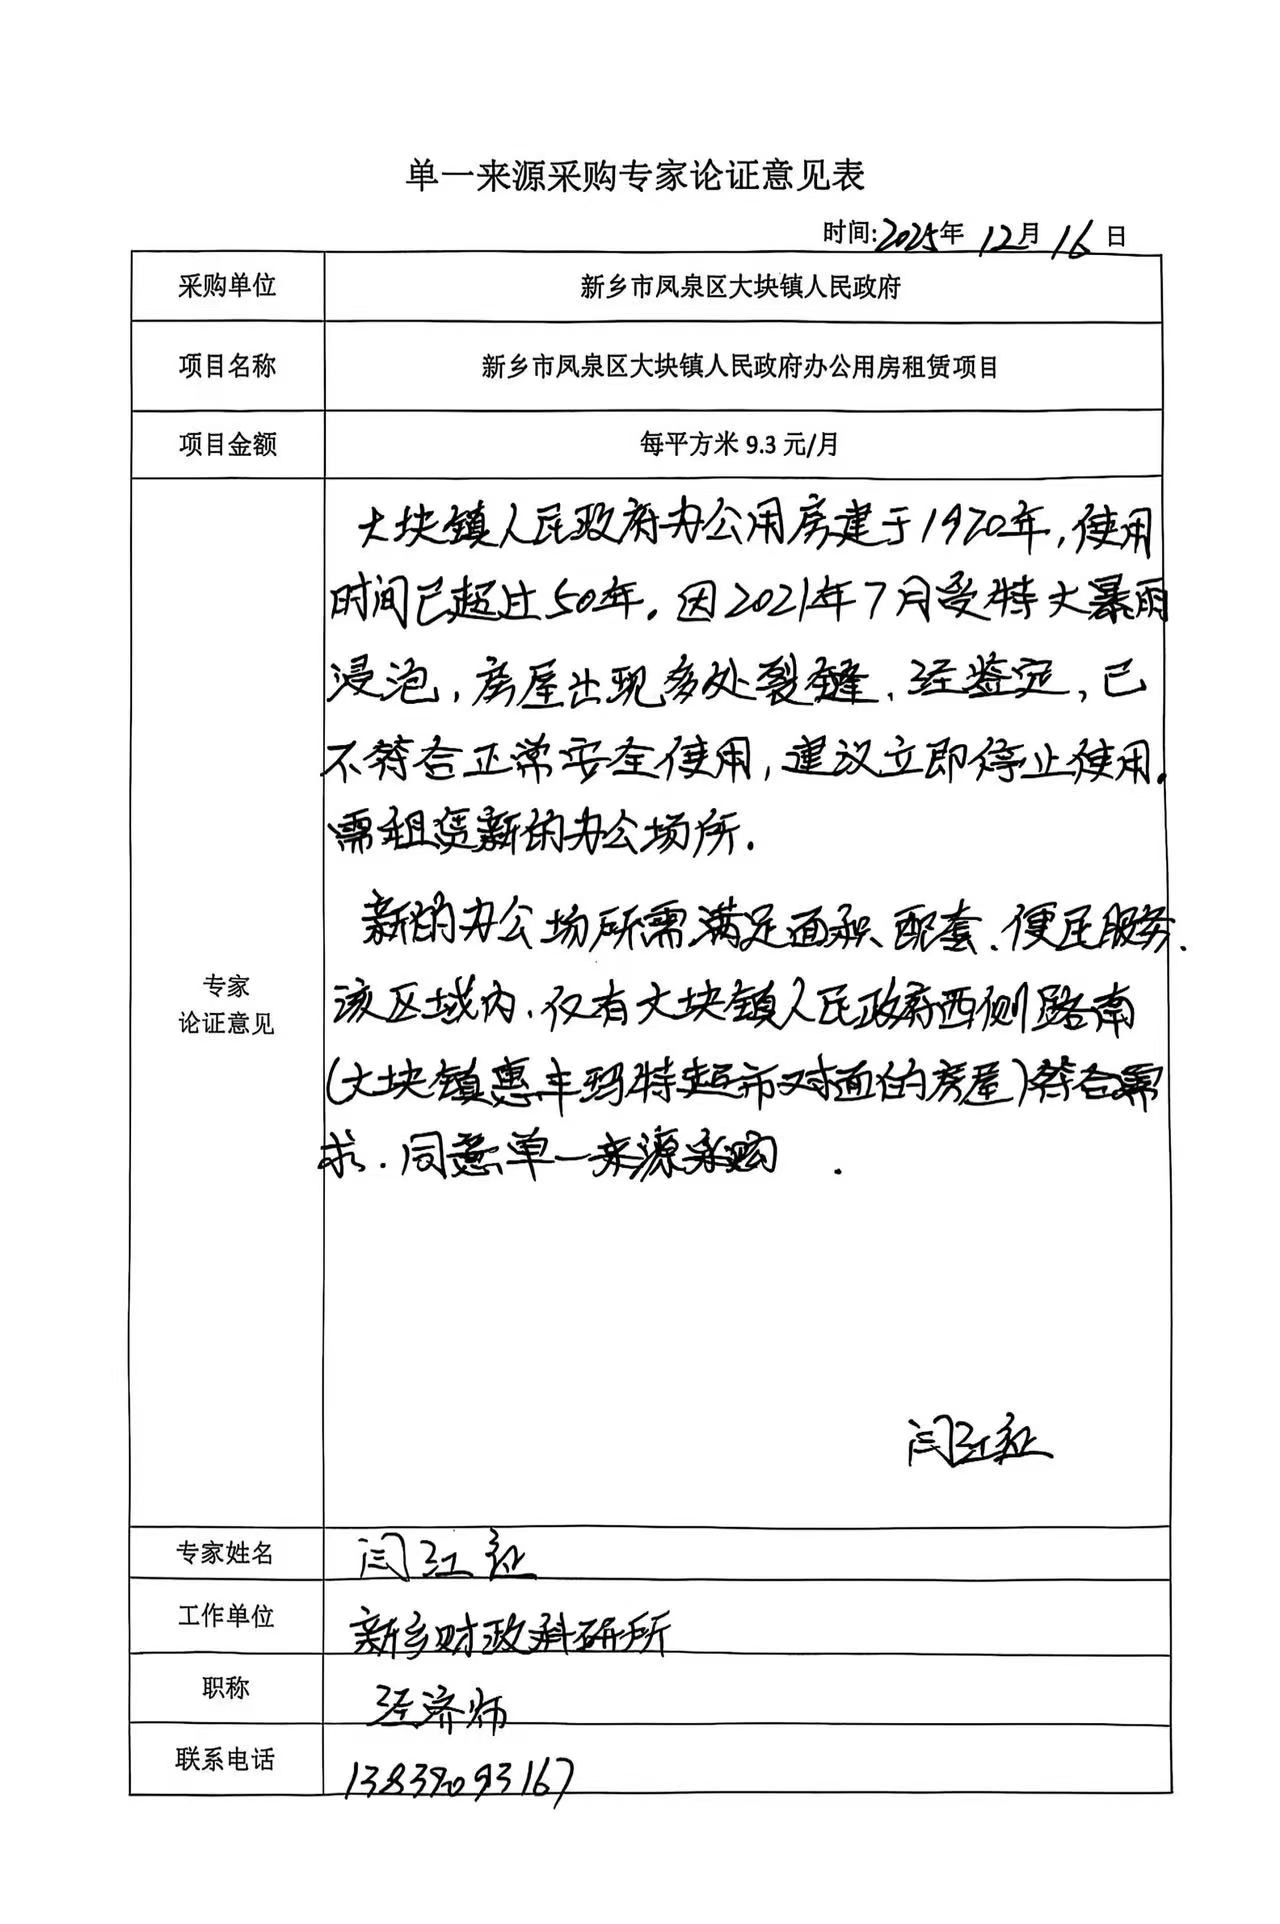 单一来源采购专家论证意见表
时间:2025年 12月 16日
采购单位 新乡市凤泉区大块镇人民政府
项目名称 新乡市凤泉区大块镇人民政府办公用房租赁项目
项目金额 每平方米 9.3 元/月
大块镇人民政府办公用房建于1970年,使用
时间已超过50年。因2021年7月受特大暴雨
浸泡,房屋出现多处裂缝、经鉴定,已
不符合正常安全使用,建议立即停止使用。
需租赁新的办公场所。
新的办公场所需满足面积、配套、便民服务.
该区域内、仅有大块镇人民政府西侧路南
(大块镇惠丰玛特超市对面的房屋)符合需
求.同意单一来源采购 .
专家
论证意见
闫江
专家姓名 闫江
工作单位 新乡财政科研所
职称 经济师
联系电话 13839093167